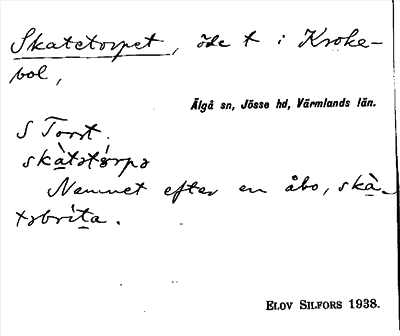 Skatetorpet, öde t i Kroke-
bol,
Älgå sn, Jösse hd, Värmlands län.
S Torst.
skàtstórps
Namnet efter en åbo, skà-
tsbríta.
ELOV SILFORS 1938.